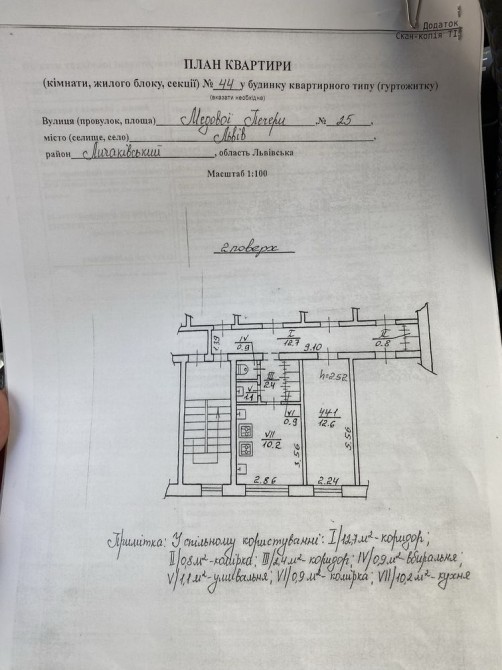 Додаток
Скан-копія ТІ
ПЛАН КВАРТИРИ
(кімнати, жилого блоку, секції) № 44 у будинку квартирного типу (гуртожитку)
(вказати необхідне)
Вулиця (провулок, площа) Медової Печери, № 25,
місто (селище, село) Львів,
район Личаківський, область Львівська
Масштаб 1:100
2 поверх
1.39
IV
0.9
I
12.7
9.10
II
0.8
III
2.4
h=2.52
V
1.1
VI
0.9
44-1
12.6
VII
10.2
3.56
5.56
2.86
2.24
Примітка: У спільному користуванні: I/12,7м²-коридор;
II/0,8м²-комірка; III/2,4м²-коридор; IV/0,9м²-вбиральня;
V/1,1м²-умивальня; VI/0,9м²-комірка; VII/10,2м²-кухня